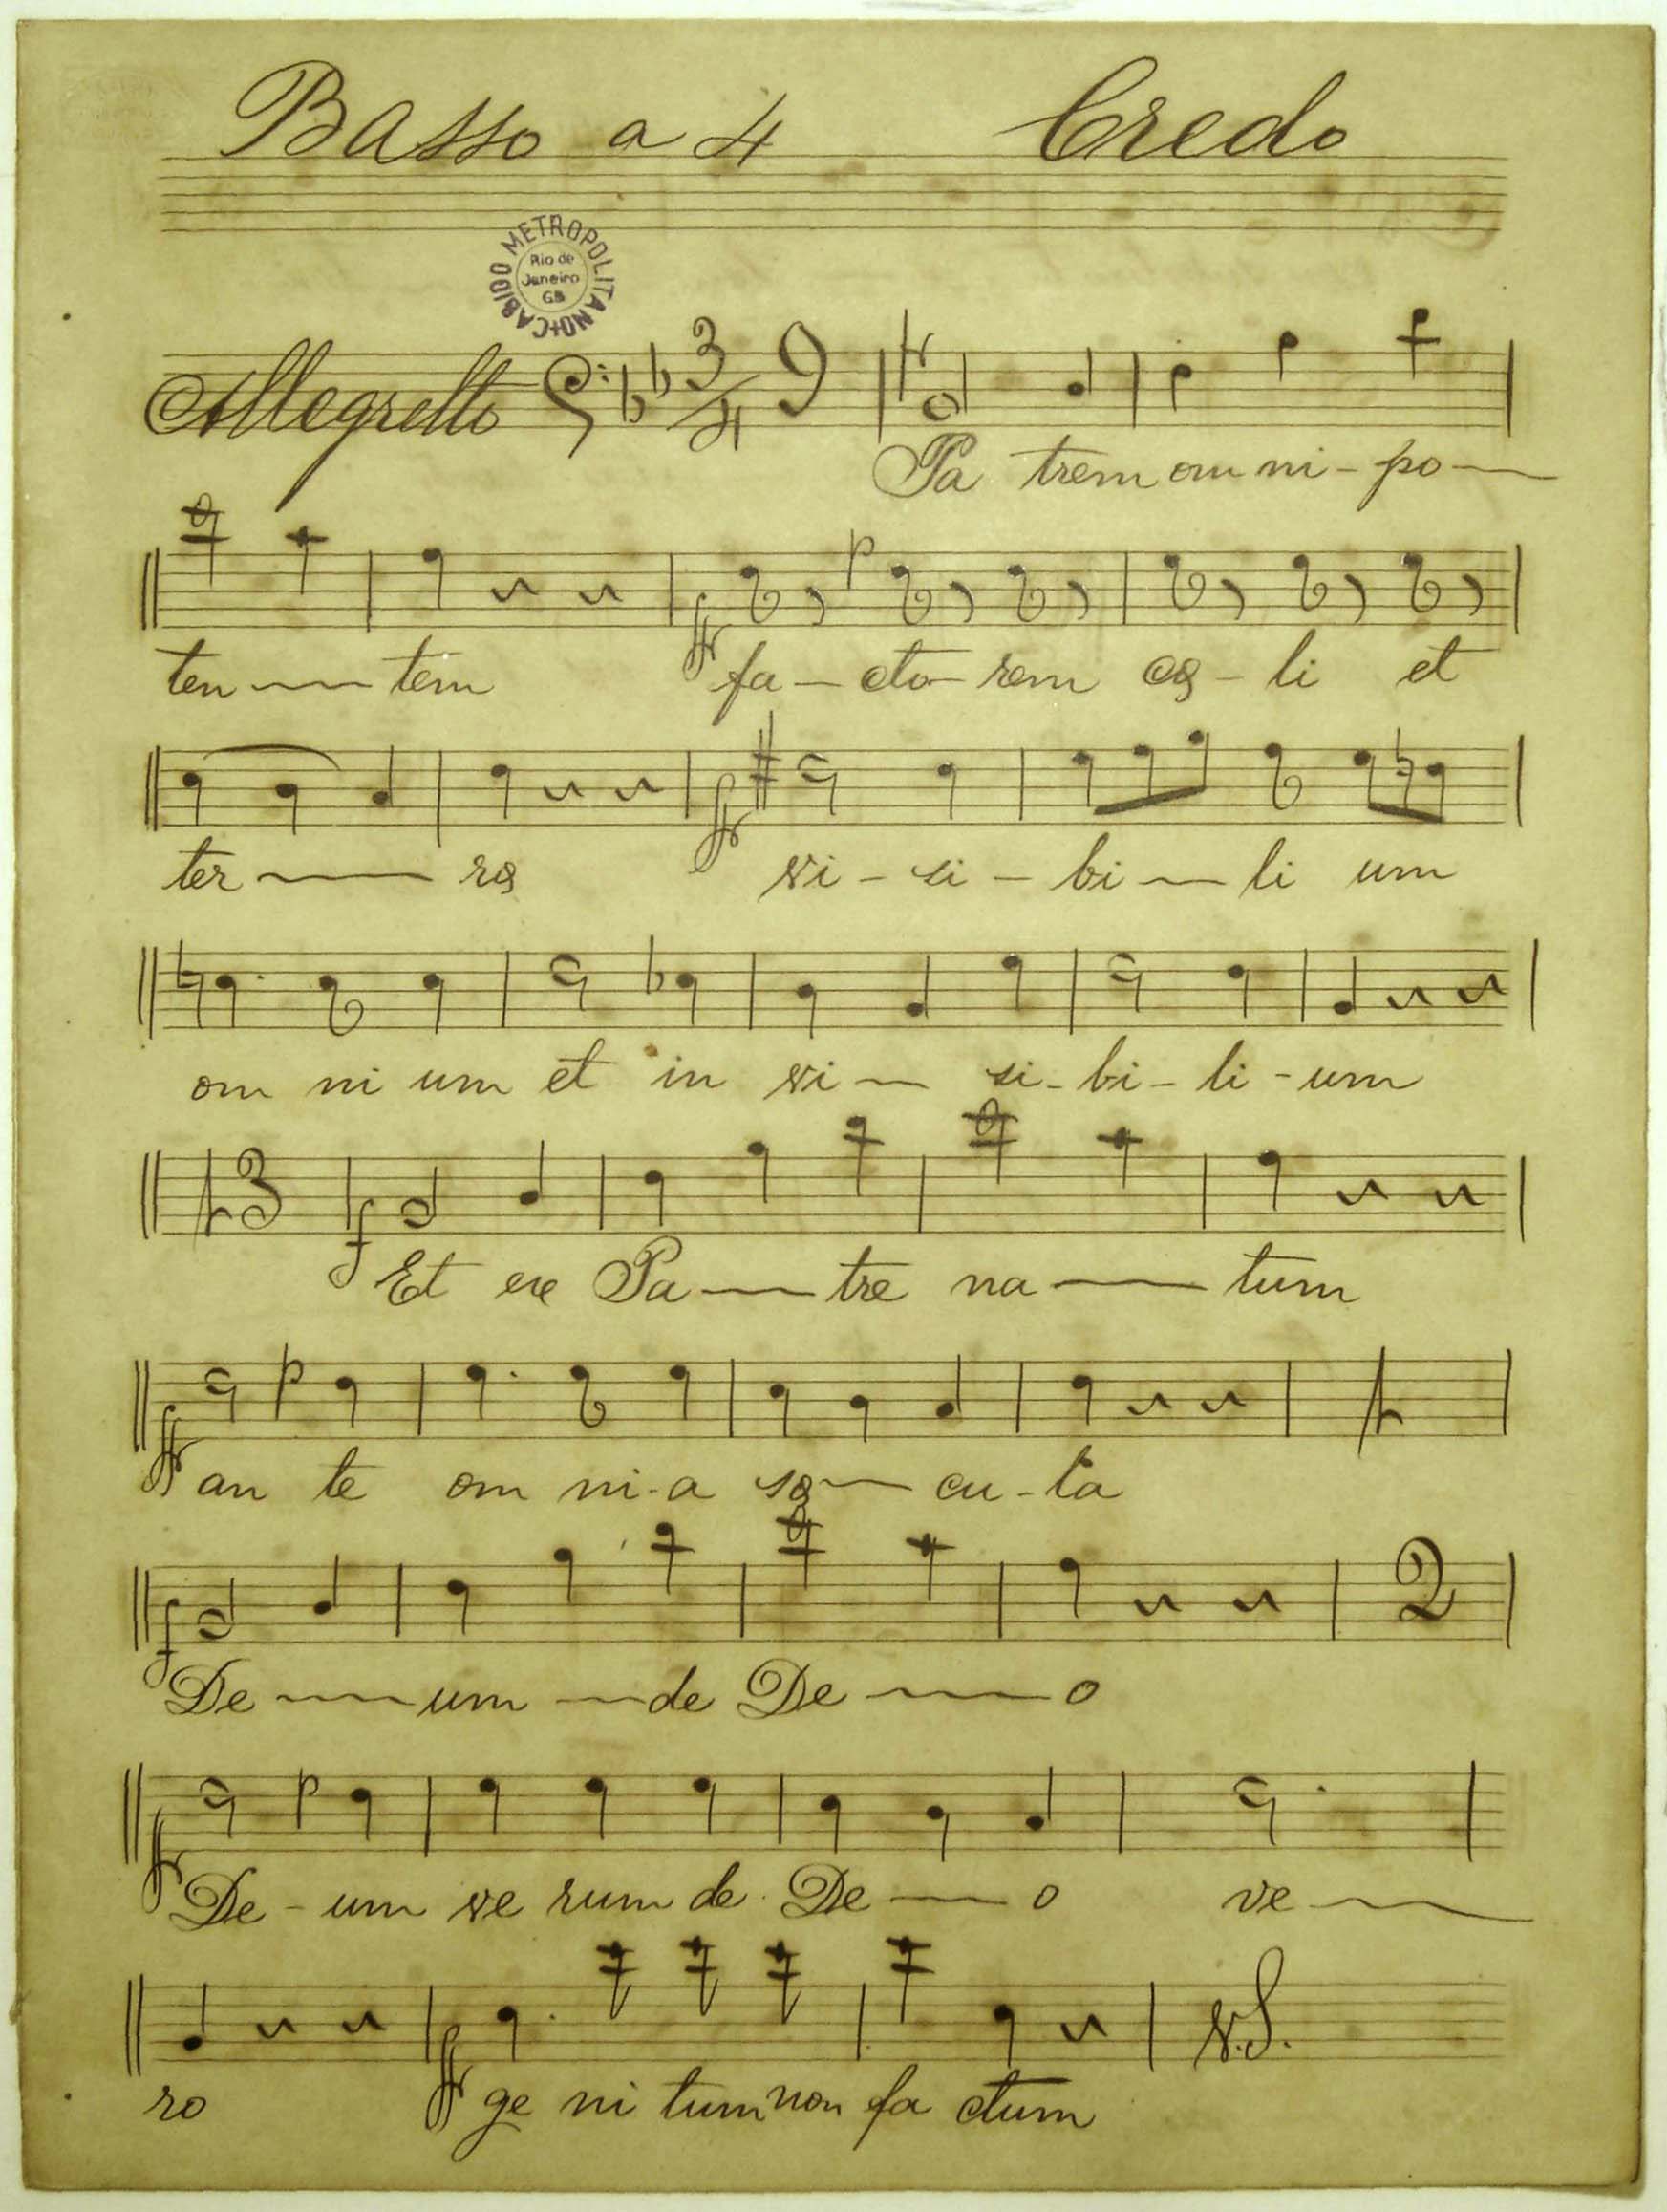 Basso a 4 Credo
CABIDO METROPOLITANO
Rio de
Janeiro
GB
Allegretto 3/4 9
Pa trem om ni - po -
ten - tem ff p fa - cto - rem cœ - li et
ter - ræ ff vi - si - bi - li um
om ni um et in vi - si - bi - li - um
3 f Et ex Pa - tre na - tum
ff p an te om ni - a sæ - cu - la
f De - um - de De - o 2
ff p De - um ve rum de De - o ve -
ro ff ge ni tum non fa ctum V.S.